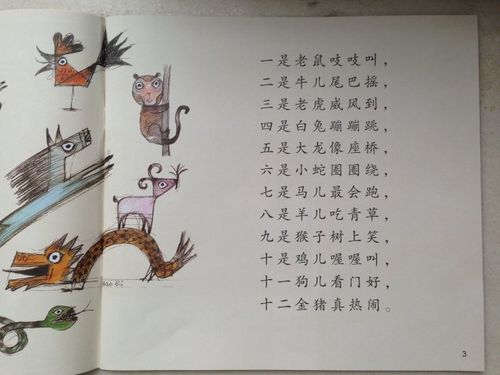 一是老鼠吱吱叫，
二是牛儿尾巴摇，
三是老虎威风到，
四是白兔蹦蹦跳，
五是大龙像座桥，
六是小蛇圈圈绕，
七是马儿最会跑，
八是羊儿吃青草，
九是猴子树上笑，
十是鸡儿喔喔叫，
十一狗儿看门好，
十二金猪真热闹。
3